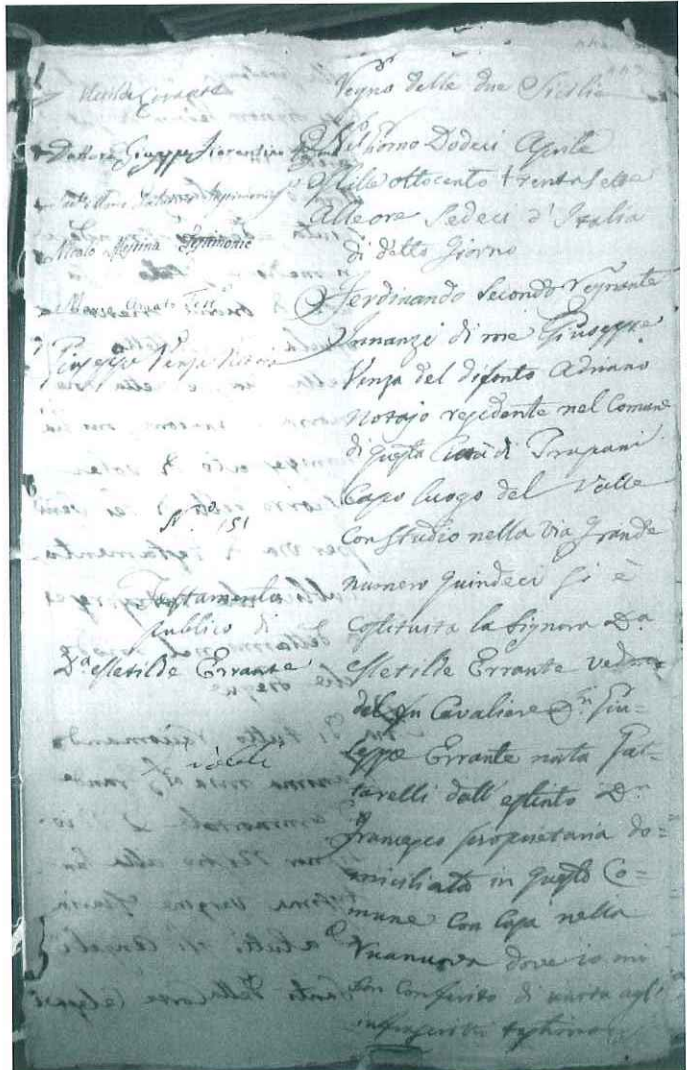 Metilde Errante
Dottore Giuseppe Fiorentino
Testimonio
Nicolò Messina Testimonio
Test.
Giuseppe Venza Notaro
N.º 151
Testamento
publico di
D.ª Metilde Errante
Regno delle due Sicilie
Il giorno Dodeci Aprile
Mille ottocento trentasette
Alle ore Sedeci d'Italia
di detto giorno
Ferdinando Secondo Regnante
Innanzi di me Giuseppe
Venza del difonto Adriano
Notajo residente nel Comune
di questa Città di Trapani
Capo luogo del Valle
Con Studio nella Via Grande
numero quindeci si è
Costituita la Signora D.ª
Metilde Errante vedova
del fu Cavaliere D.n Giu-
seppe Errante nata Pat-
tarelli dall'estinto D.n
Francesco proprietaria do=
miciliata in questo Co=
mune Con Casa nella
dove io mi
son Conferito di unita agli
infrascritti testimonj